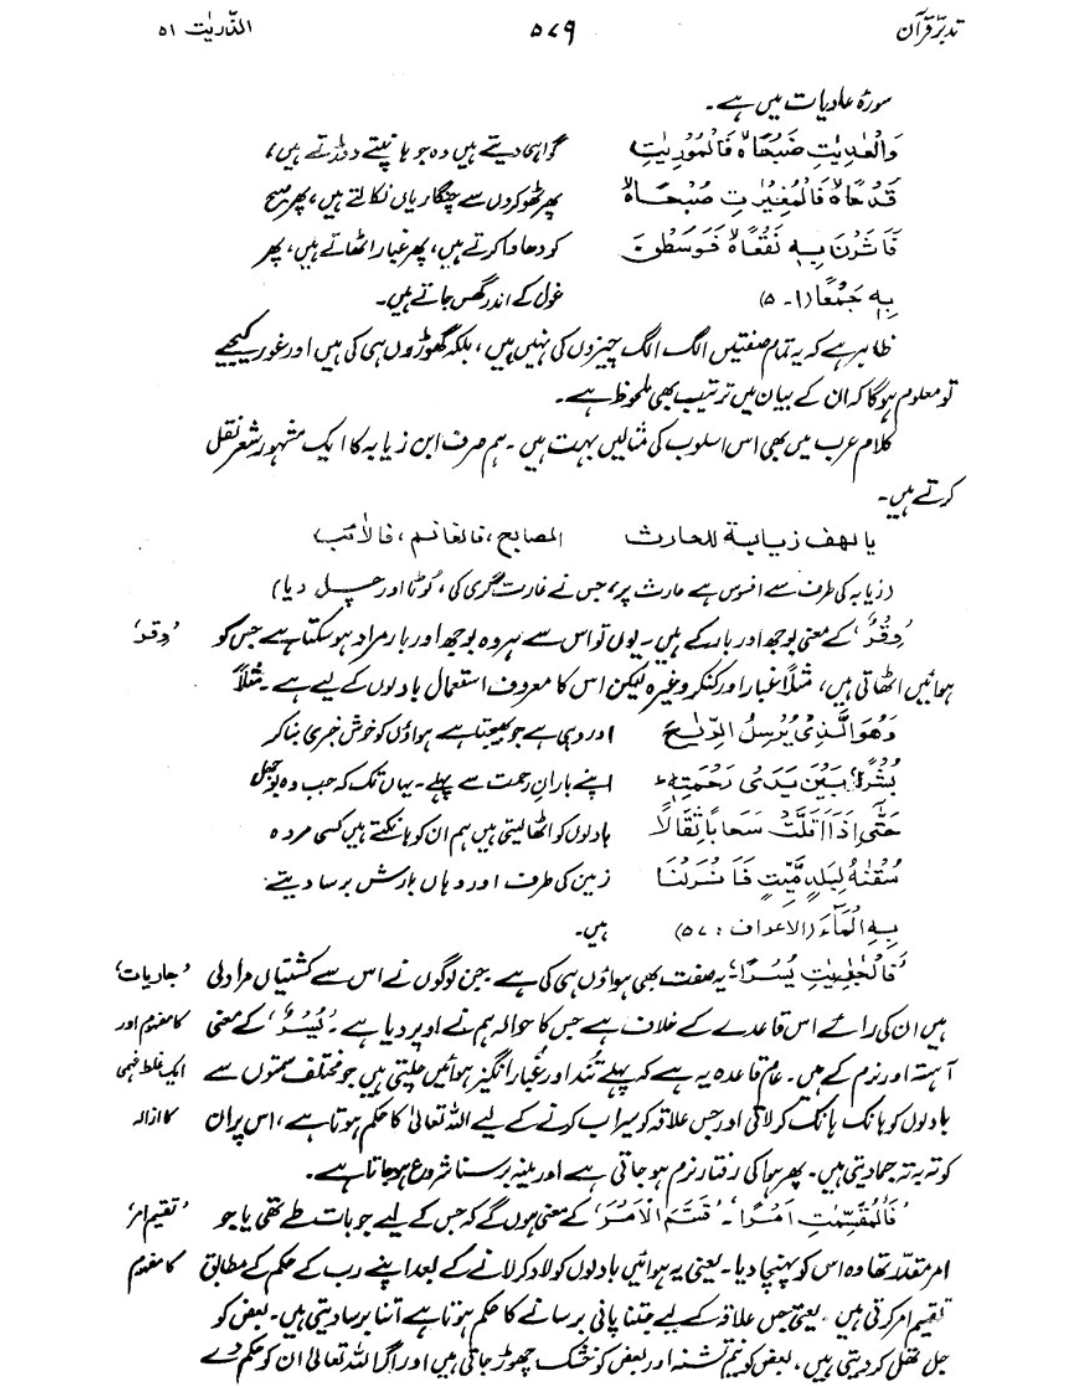 تدبّرِ قرآن ۵۷۹ الذّٰریٰت ۵۱
سورۂ عادیات میں ہے۔
وَالْعٰدِیٰتِ ضَبْحًاۙ فَالْمُوْرِیٰتِ گواہی دیتے ہیں وہ جو ہانپتے دوڑتے ہیں،
قَدْحًاۙ فَالْمُغِیْرٰتِ صُبْحًاۙ پھر ٹھوکروں سے چنگاریاں نکالتے ہیں، پھر صبح
فَاَثَرْنَ بِہٖ نَقْعًاۙ فَوَسَطْنَ کو دھاوا کرتے ہیں، پھر غبار اٹھاتے ہیں، پھر
بِہٖ جَمْعًا (۱۔ ۵) غول کے اندر گھس جاتے ہیں۔
ظاہر ہے کہ یہ تمام صفتیں الگ الگ چیزوں کی نہیں ہیں، بلکہ گھوڑوں ہی کی ہیں اور غور کیجیے
تو معلوم ہوگا کہ ان کے بیان میں ترتیب بھی ملحوظ ہے۔
کلام عرب میں بھی اس اسلوب کی مثالیں بہت ہیں۔ ہم صرف ابن زیابہ کا ایک مشہور شعر نقل
کرتے ہیں۔
یا لھف زیابة للحارث الصابح، فالغانم، فالآئب
(زیابہ کی طرف سے افسوس ہے حارث پر، جس نے غارت گری کی، لُوٹا اور چل دیا)
’وِقْرٌ‘ کے معنی بوجھ اور بار کے ہیں۔ یوں تو اس سے ہر وہ بوجھ اور بار مراد ہو سکتا ہے جس کو ’وِقر‘
ہوائیں اٹھاتی ہیں، مثلاً غبار اور کنکر وغیرہ لیکن اس کا معروف استعمال بادلوں کے لیے ہے۔ مثلاً
وَھُوَ الَّذِیْ یُرْسِلُ الرِّیٰحَ اور وہی ہے جو بھیجتا ہے ہواؤں کو خوش خبری بنا کر
بُشْرًاۢ بَیْنَ یَدَیْ رَحْمَتِہٖؕ اپنے بارانِ رحمت سے پہلے۔ یہاں تک کہ جب وہ بوجھل
حَتّٰۤی اِذَاۤ اَقَلَّتْ سَحَابًا ثِقَالًا بادلوں کو اٹھا لیتی ہیں ہم ان کو ہانکتے ہیں کسی مردہ
سُقْنٰہُ لِبَلَدٍ مَّیِّتٍ فَاَنْزَلْنَا زمین کی طرف اور وہاں بارش برسا دیتے
بِہِ الْمَآءَ (الاعراف : ۵۷) ہیں۔
’فَالْجٰرِیٰتِ یُسْرًا‘، یہ صفت بھی ہواؤں ہی کی ہے۔ جن لوگوں نے اس سے کشتیاں مراد لی ’جاریات‘
ہیں ان کی رائے اس قاعدے کے خلاف ہے جس کا حوالہ ہم نے اوپر دیا ہے۔ ’یُسْرٌ‘ کے معنی کا مفہوم اور
آہستہ اور نرم کے ہیں۔ عام قاعدہ یہ ہے کہ پہلے تُند اور غُبار انگیز ہوائیں چلتی ہیں جو مختلف سمتوں سے ایک غلط فہمی
بادلوں کو ہانک ہانک کر لاتی اور جس علاقہ کو سیراب کرنے کے لیے اللہ تعالیٰ کا حکم ہوتا ہے، اس پر ان کا ازالہ
کو تہ بہ تہ جما دیتی ہیں۔ پھر ہوا کی رفتار نرم ہو جاتی ہے اور مینہ برسنا شروع ہو جاتا ہے۔
’فَالْمُقَسِّمٰتِ اَمْرًا‘۔ ’قَسَّمَ الْاَمْرَ‘ کے معنی ہوں گے کہ جس کے لیے جو بات طے تھی یا جو ’تقسیم امر‘
امر مقدّر تھا وہ اس کو پہنچا دیا۔ یعنی یہ ہوائیں بادلوں کو لاد کر لانے کے بعد اپنے رب کے حکم کے مطابق کا مفہوم
تقسیم امر کرتی ہیں۔ یعنی جس علاقہ کے لیے جتنا پانی برسانے کا حکم ہوتا ہے اتنا برسا دیتی ہیں۔ بعض کو
جل تھل کر دیتی ہیں، بعض کو نیم تشنہ اور بعض کو خشک چھوڑ جاتی ہیں اور اگر اللہ تعالیٰ ان کو حکم دے